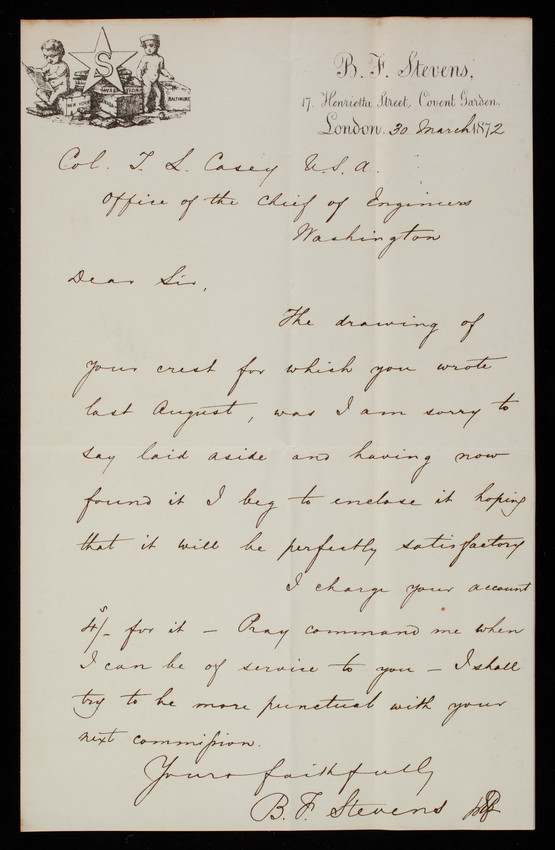 S
NEW YORK
BALTIMORE
B. F. Stevens,
17. Henrietta Street, Covent Garden.
London. 30 March 1872
Col. T. L. Casey U.S.A.
Office of the Chief of Engineers
Washington
Dear Sir,
The drawing of
your crest for which you wrote
last August, was I am sorry to
say laid aside and having now
found it I beg to enclose it hoping
that it will be perfectly satisfactory
I charge your account
4s/- for it — Pray command me when
I can be of service to you — I shall
try to be more punctual with your
next commission.
Yours faithfully
B. F. Stevens